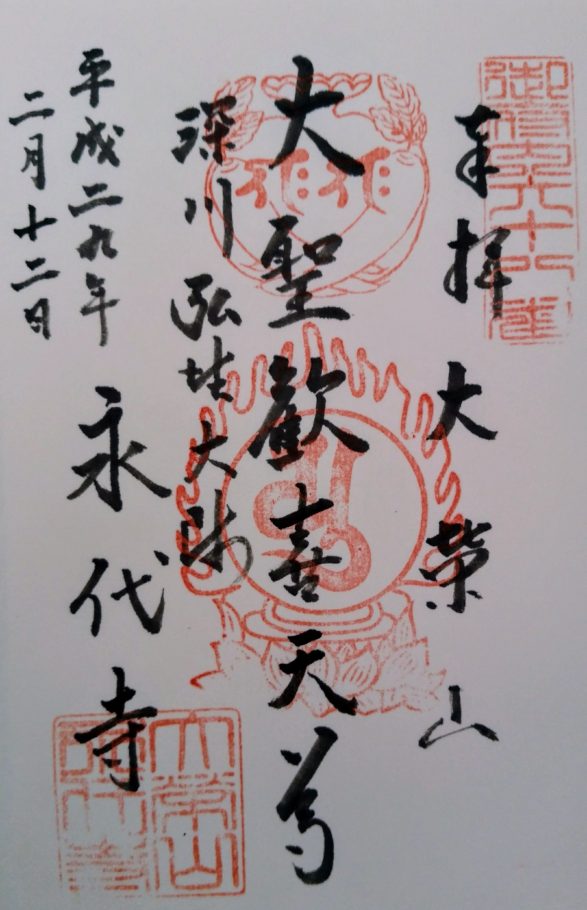 御府内六十八番
奉拝　大榮山
大聖歓喜天尊
深川弘法大師
永代寺
平成二九年
二月十二日
大榮山
永代寺